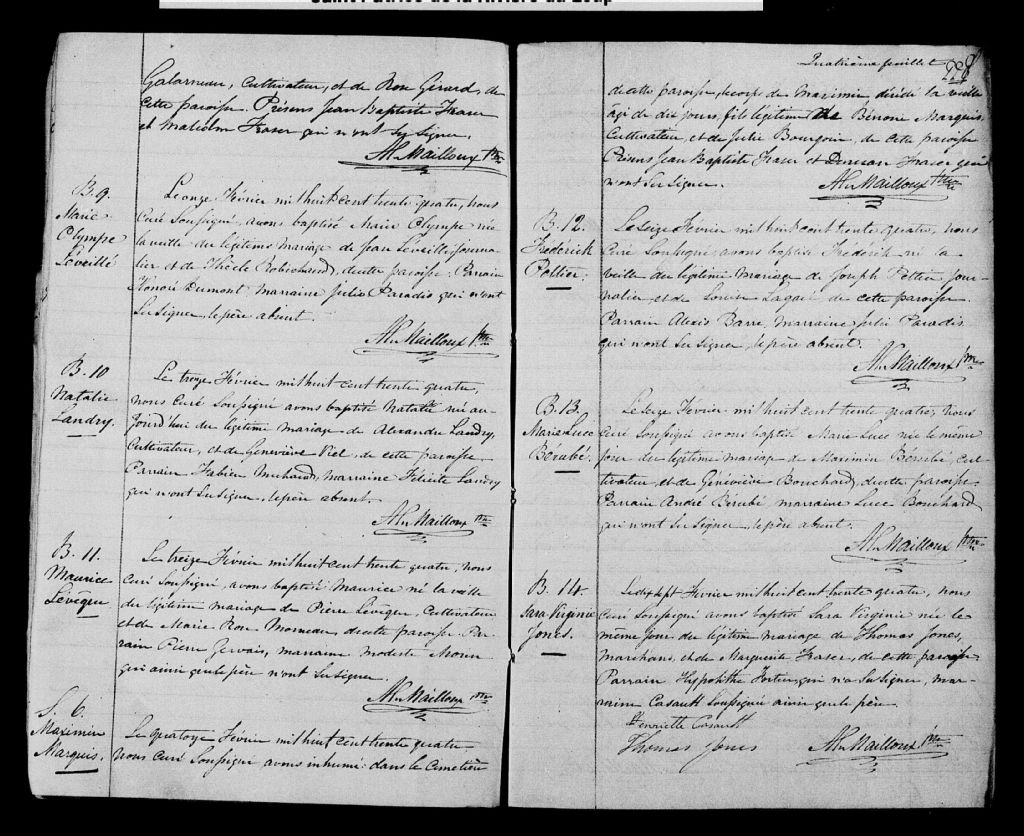 Saint Patrice de la Rivière du Loup
Galarneau, Cultivateur, et de Rose Girard, de
cette paroisse. Présens Jean Baptiste Fraser
et Malcolm Fraser qui n'ont su signer.
Al. Mailloux Ptre
B. 9.
Marie
Olympe
Léveillé
Le onze Février mil huit cent trente quatre, nous
Curé Soussigné, avons baptisé Marie Olympe née
la veille du légitime mariage de Jean Léveillé, journa-
lier et de Thècle Robichaud, de cette paroisse. Parrain
Honoré Dumont marraine Julie Paradis qui n'ont
Su signer, le père absent.
Al. Mailloux Ptre
B. 10
Natalie
Landry.
Le treize Février mil huit cent trente quatre,
nous Curé Soussigné avons baptisé Natalie née au-
jourd'hui du légitime mariage de Alexandre Landry,
Cultivateur, et de Geneviève Viel, de cette paroisse
Parrain Fabien Michaud, marraine Félicité Landry
qui n'ont su signer, le père absent.
Al. Mailloux Ptre
B. 11.
Maurice
Lévêque
Le treize Février mil huit cent trente quatre, nous
Curé Soussigné, avons baptisé Maurice né la veille
du légitime mariage de Pierre Lévêque, Cultivateur
et de Marie Rose Morneau, de cette paroisse. Par-
rain Pierre Gervais, marraine Modeste Morin
qui ainsi que le père n'ont su signer.
Al. Mailloux Ptre
S. 6.
Maximin
Marquis.
Le quatorze Février mil huit cent trente quatre
Nous Curé Soussigné avons inhumé dans le Cimetière
Quatrième feuillet
228
de cette paroisse, le corps de Maximin décédé la veille
âgé de dix jours, fils légitime de Bénoni Marquis,
Cultivateur, et de Julie Bourgoin, de cette paroisse
Présens Jean Baptiste Fraser et Duncan Fraser qui
n'ont su signer.
Al. Mailloux Ptre
B. 12.
Frédérick
Pottier.
Le seize Février mil huit cent trente quatre, nous
Curé Soussigné, avons baptisé Frédérick né la
veille du légitime mariage de Joseph Pottier Jour-
nalier et de Louise Lagacé de cette paroisse.
Parrain Alexis Barre, marraine Julie Paradis
qui n'ont su signer, le père absent.
Al. Mailloux Ptre
B. 13.
Marie Luce
Bérubé.
Le seize Février mil huit cent trente quatre, nous
Curé Soussigné avons baptisé Marie Luce née le même
jour du légitime mariage de Maximin Bérubé, cul-
tivateur, et de Géneviève Bouchard, de cette paroisse.
Parrain André Bérubé, marraine Luce Bouchard
qui n'ont su signer, le père absent.
Al. Mailloux Ptre
B. 14.
Sara Virginie
Jones.
Le dix sept Février mil huit cent trente quatre, nous
Curé Soussigné avons baptisé Sara Virginie née le
même jour du légitime mariage de Thomas Jones,
Marchand, et de Marguerite Fraser, de cette paroisse
Parrain Hyppolithe Fortier, qui n'a su signer, mar-
raine Casault Soussignée ainsi que le père.
Henriette Casault
Thomas Jones
Al. Mailloux Ptre